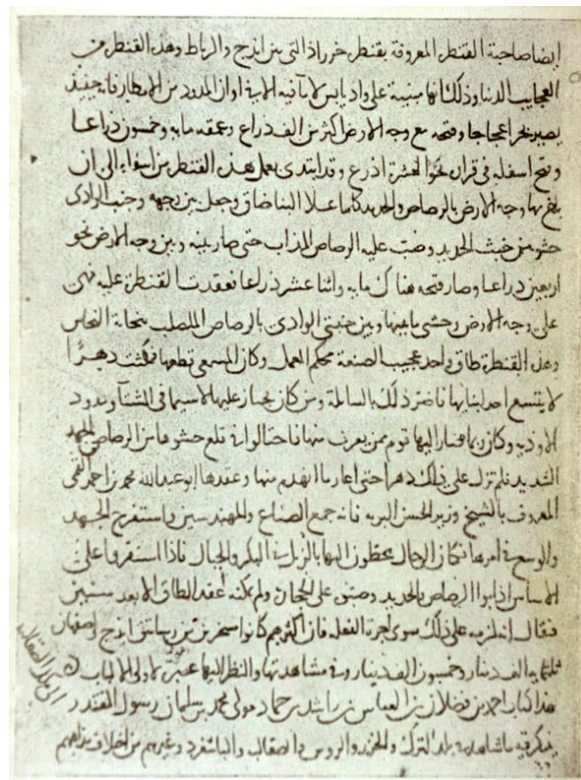 ايضا صاحبة القنطرة المعروفة بقنطرة خرزاذ التي بين ايذج والرباط وهذه القنطرة من
العجايب الدنيا وذلك انها مبنية على واد يابس لا ماء فيه الا في اوان المدود من الامطار فانه حينئذ
يصير بحرا عجاجا وفتحه مع وجه الارض اكثر من الف ذراع وعمقه مايه وخمسون ذراعا
وفتح اسفله في قراره نحو العشرة اذرع وقد ابتدى بعمل هذه القنطرة من اسفلها الى ان
بلغ بها وجه الارض بالرصاص والحديد كلما علا البنا ضاق وجعل بين وجهه وجنب الوادي
حشو من خبث الحديد وصب عليه الرصاص المذاب حتى صار بينه وبين وجه الارض نحو
اربعين ذراعا وصار فتحه هناك مايه واثنا عشر ذراعا فعقدت القنطرة عليه فهي
على وجه الارض وحشى ما بينها وبين جنبتي الوادي بالرصاص المصلب بنحاتة النحاس
وهذه القنطرة طاق واحد عجيب الصنعة محكم العمل وكان المسمعي قطعها فمكثت دهرا
لا يتسع احد لبنايها فاضر ذلك بالسابلة ومن كان يجتاز عليها لا سيما في الشتآ ومدود
الاوديه وكان ربما صار اليها قوم ممن يقرب منها فاحتالوا في قلع حشوها من الرصاص بالجهد
الشديد فلم تزل على ذلك دهرا حتى اعاد ما انهدم منها وعقدها ابو عبدالله محمد بن احمد القمي
المعروف بالشيخ وزير الحسن البويه فانه جمع الصناع والمهندسين واستفرغ الجهد
والوسع في امرها فكان الرجال يحطون اليها بالزبل في البكر والحبال فاذا استقروا على
الاساس اذابوا الرصاص والحديد وصبوه على الحجارة ولم يمكنه عقد الطاق الا بعد سنين
فيقال انه لزمه على ذلك سوى اجرة الفعلة فان اكثرهم كانوا مسخرين من رساتيق ايذج واصفهان
ثلثمايه الف دينار وخمسون الف دينار وفي مشاهدتها والنظر اليها عبرة لاولي الالباب
هذا كتاب احمد بن فضلان بن العباس بن راشد بن حماد مولى محمد بن سليمان رسول المقتدر
الى ملك الصقالبة
يذكر فيه ما شاهد في بلد الترك والخزر والروس والصقالبة والباشغرد وغيرهم من اختلاف مذاهبهم